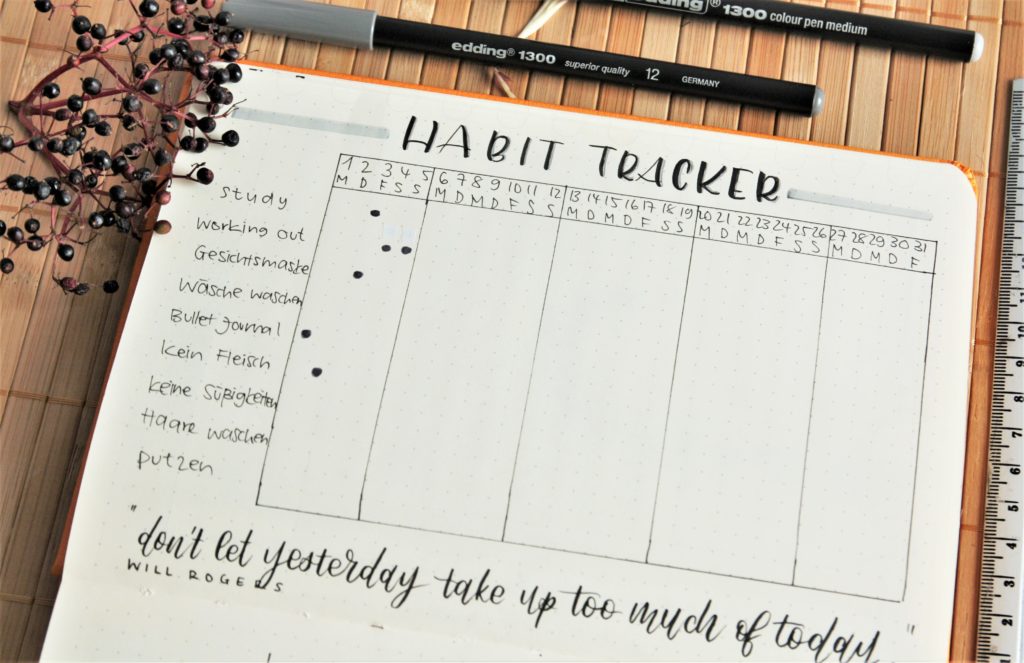 edding® 1300 colour pen medium
edding® 1300 superior quality 12 GERMANY
HABIT TRACKER
1 2 3 4 5 6 7 8 9 10 11 12 13 14 15 16 17 18 19 20 21 22 23 24 25 26 27 28 29 30 31
M D F S S M D M D F S S M D M D F S S M D M D F S S M D M D F
study
working out
Gesichtsmaske
Wäsche waschen
Bullet Journal
kein Fleisch
keine Süßigkeiten
Haare waschen
putzen
"don't let yesterday take up too much of today"
WILL ROGERS
11
10
9
8
7
6
5
4
3
2